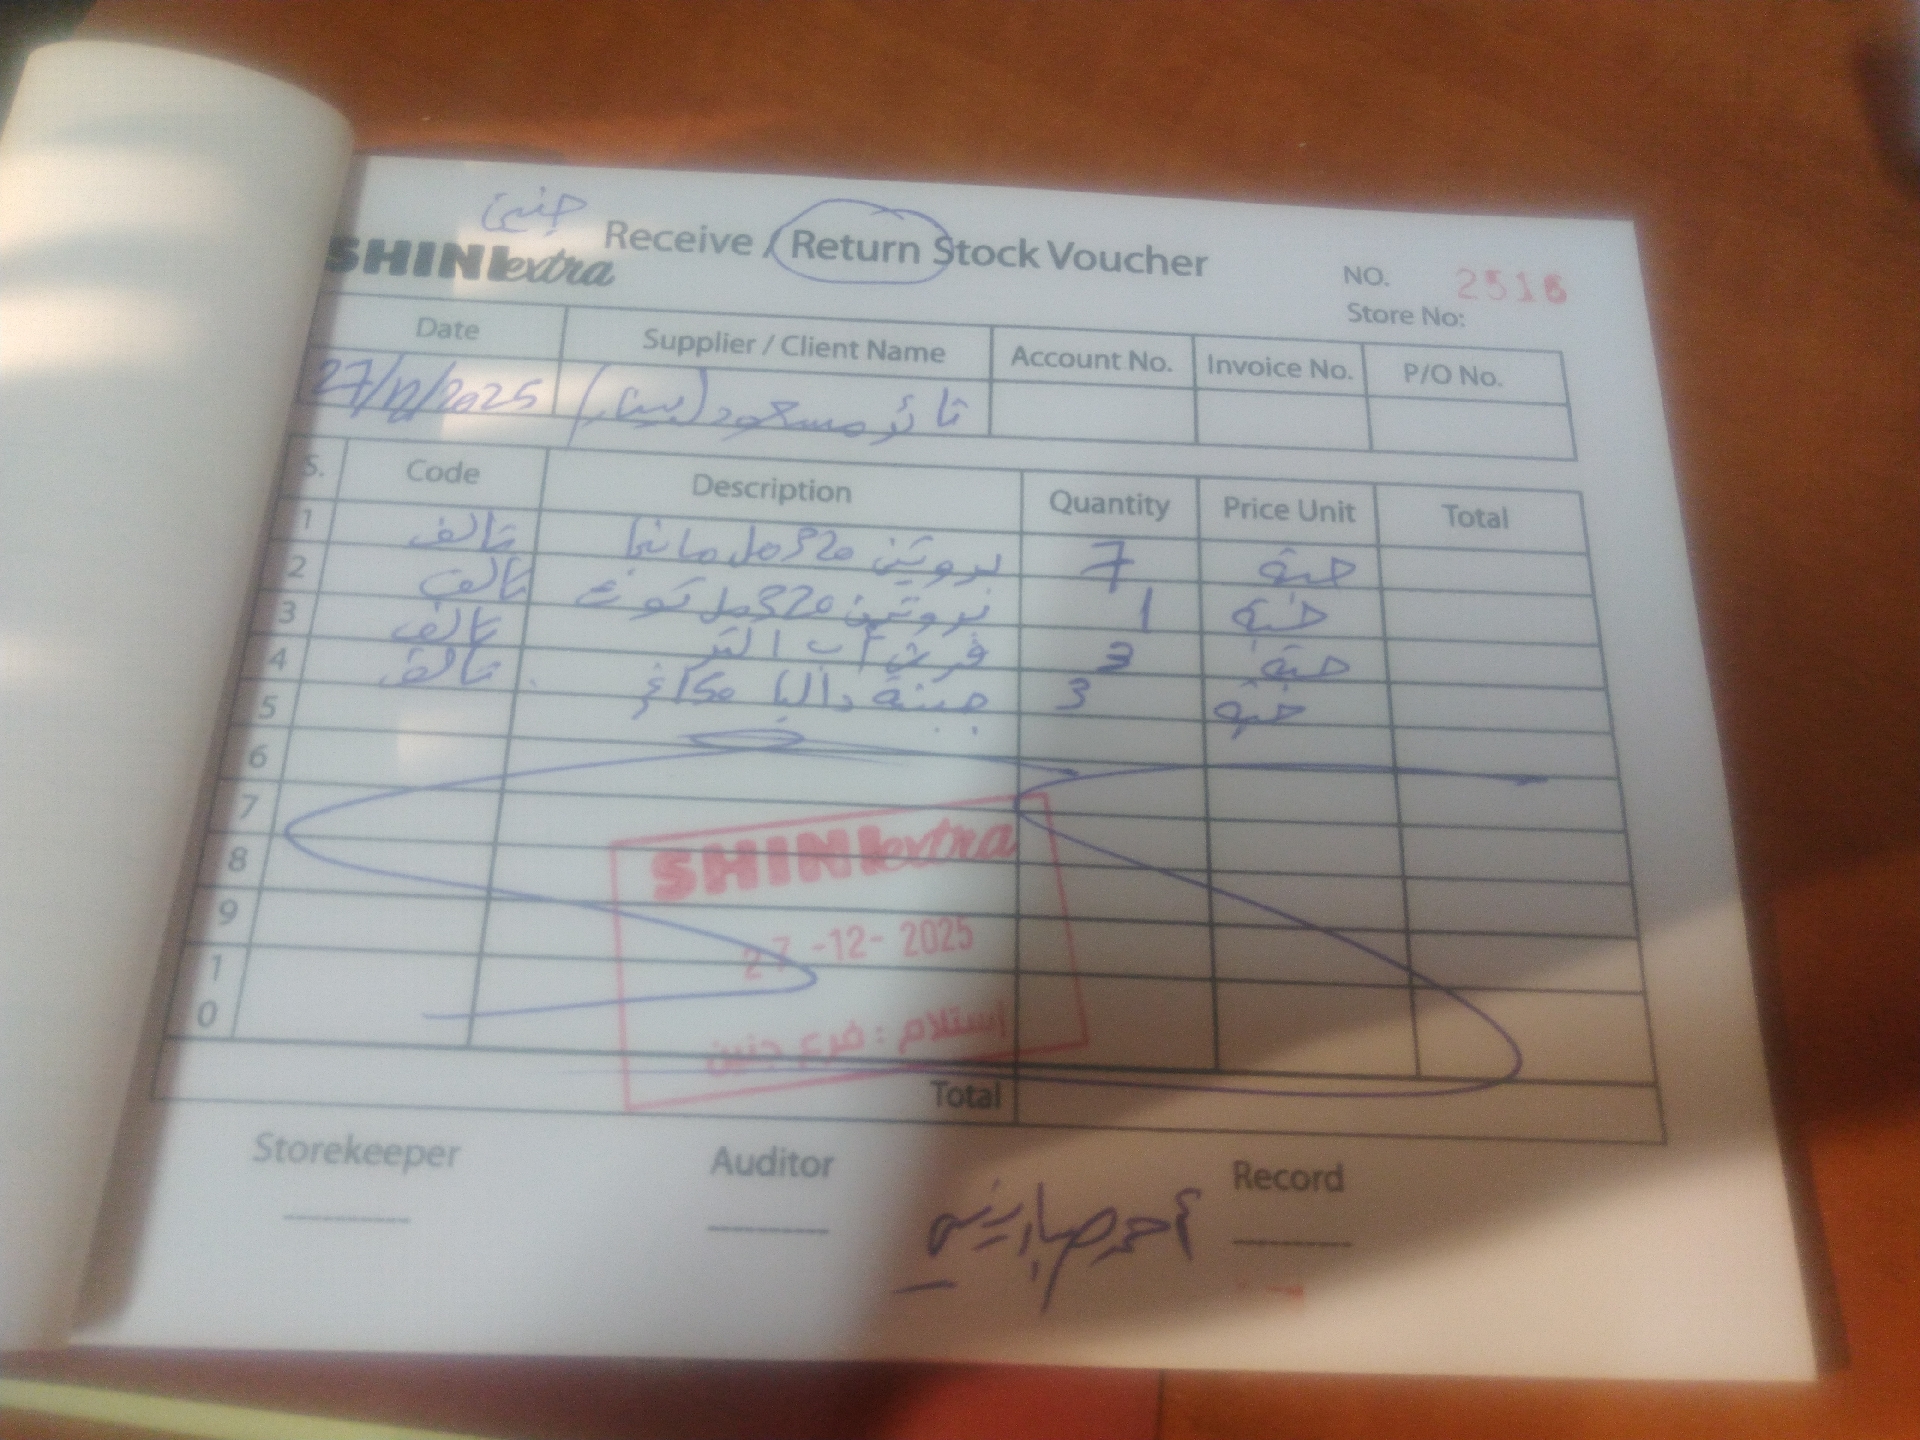 جنين
SHINI extra
Receive / Return Stock Voucher
NO. 2516
Store No:
Date Supplier / Client Name Account No. Invoice No. P/O No.
27/12/2025 ثائر مسعود
S. Code Description Quantity Price Unit Total
1 تالف بروتين 320مل مانجا 7 حبة
2 تالف بروتين 320مل 1 حبة
3 تالف 3 حبة
4 تالف جبنة 3 حبة
5
6
7
8
9
10
SHINI extra
27 -12- 2025
إستلام : فرع جنين
Total
Storekeeper Auditor Record
أحمد